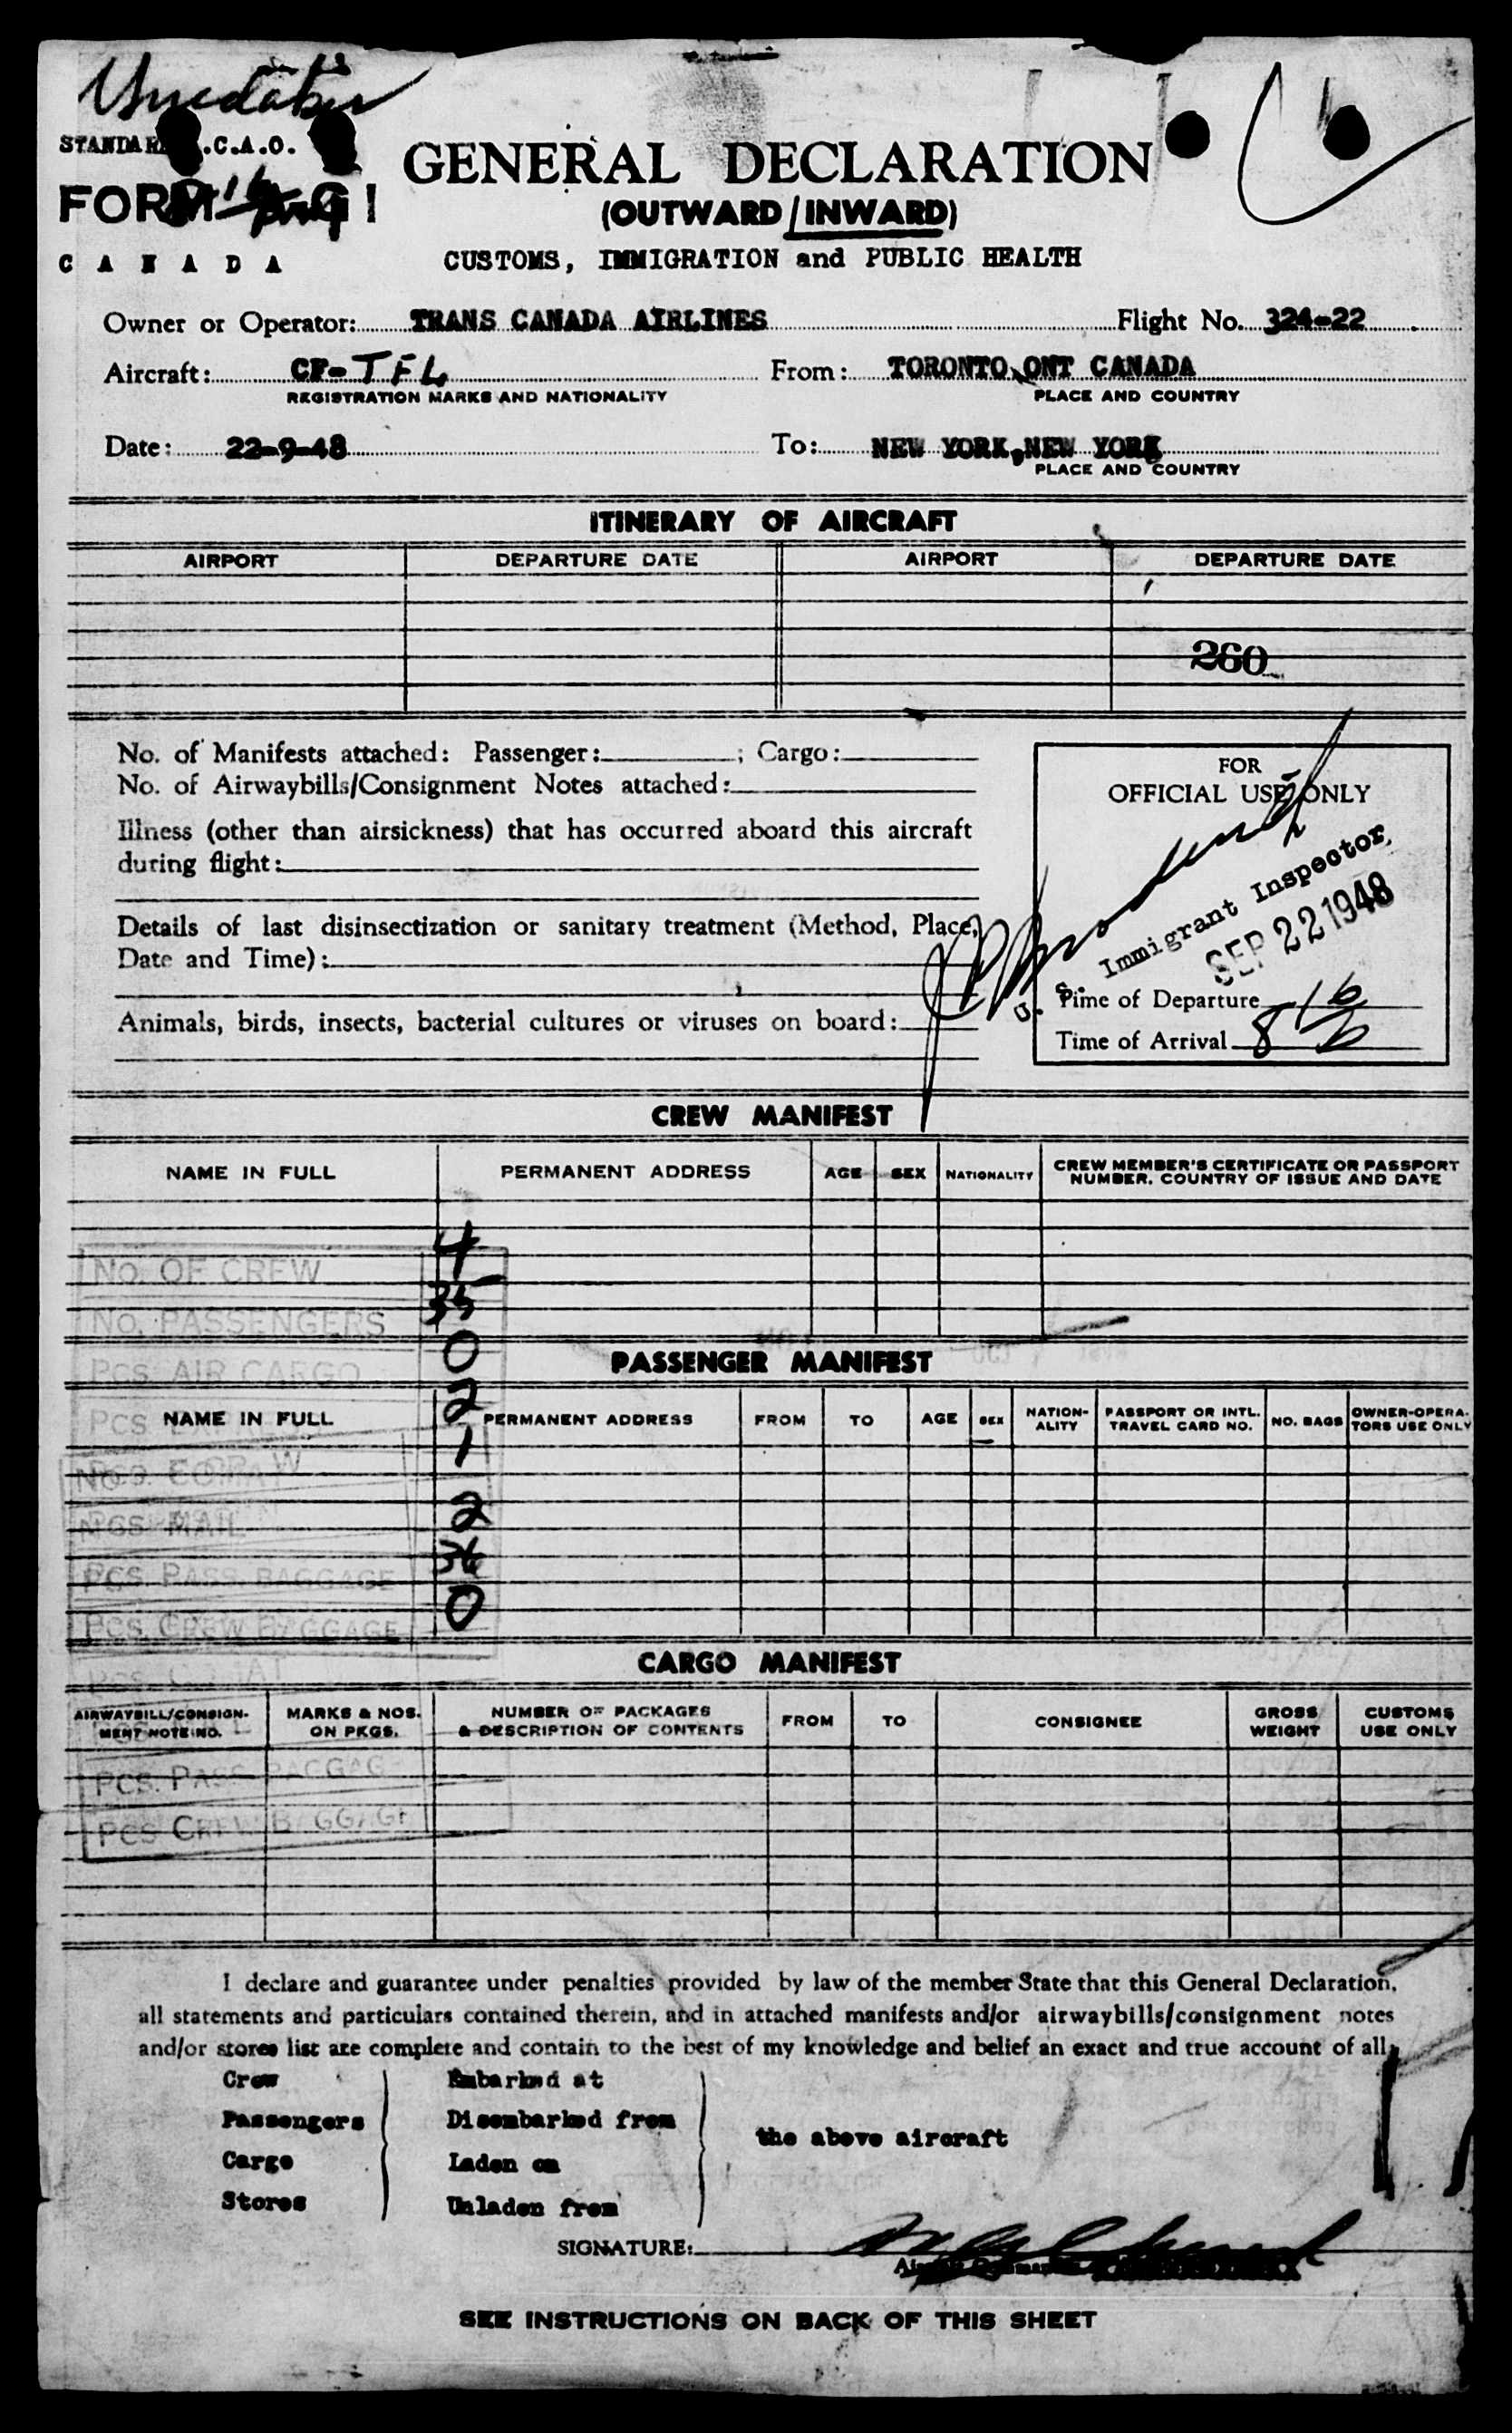 STANDARD I.C.A.O.
FORM G 1
CANADA
GENERAL DECLARATION
(OUTWARD/INWARD)
CUSTOMS, IMMIGRATION and PUBLIC HEALTH
Owner or Operator: TRANS CANADA AIRLINES Flight No. 324-22
Aircraft: CF-TFL From: TORONTO, ONT CANADA
REGISTRATION MARKS AND NATIONALITY PLACE AND COUNTRY
Date: 22-9-48 To: NEW YORK, NEW YORK
PLACE AND COUNTRY
ITINERARY OF AIRCRAFT
AIRPORT DEPARTURE DATE AIRPORT DEPARTURE DATE
260
No. of Manifests attached: Passenger: ; Cargo:
No. of Airwaybills/Consignment Notes attached:
Illness (other than airsickness) that has occurred aboard this aircraft
during flight:
Details of last disinsectization or sanitary treatment (Method, Place,
Date and Time):
Animals, birds, insects, bacterial cultures or viruses on board:
FOR
OFFICIAL USE ONLY
U. S. Immigrant Inspector
SEP 22 1948
Time of Departure 16
Time of Arrival 8
CREW MANIFEST
NAME IN FULL PERMANENT ADDRESS AGE SEX NATIONALITY CREW MEMBER'S CERTIFICATE OR PASSPORT
NUMBER, COUNTRY OF ISSUE AND DATE
NO. OF CREW 4
NO. PASSENGERS 35
PCS. AIR CARGO 0
PASSENGER MANIFEST
2
NAME IN FULL PERMANENT ADDRESS FROM TO AGE SEX NATION-
ALITY PASSPORT OR INTL.
TRAVEL CARD NO. NO. BAGS OWNER-OPERA-
TORS USE ONLY
1
MAIL 2
PCS. PASS. BAGGAGE 36
PCS. CREW BAGGAGE 0
CARGO MANIFEST
AIRWAYBILL/CONSIGN-
MENT NOTE NO. MARKS & NOS.
ON PKGS. NUMBER OF PACKAGES
& DESCRIPTION OF CONTENTS FROM TO CONSIGNEE GROSS
WEIGHT CUSTOMS
USE ONLY
PCS. PASS BAGGAG
PCS CREW BAGGAGE
I declare and guarantee under penalties provided by law of the member State that this General Declaration,
all statements and particulars contained therein, and in attached manifests and/or airwaybills/consignment notes
and/or stores list are complete and contain to the best of my knowledge and belief an exact and true account of all
Crew Embarked at
Passengers Disembarked from
the above aircraft
Cargo Laden on
Stores Unladen from
SIGNATURE:
SEE INSTRUCTIONS ON BACK OF THIS SHEET